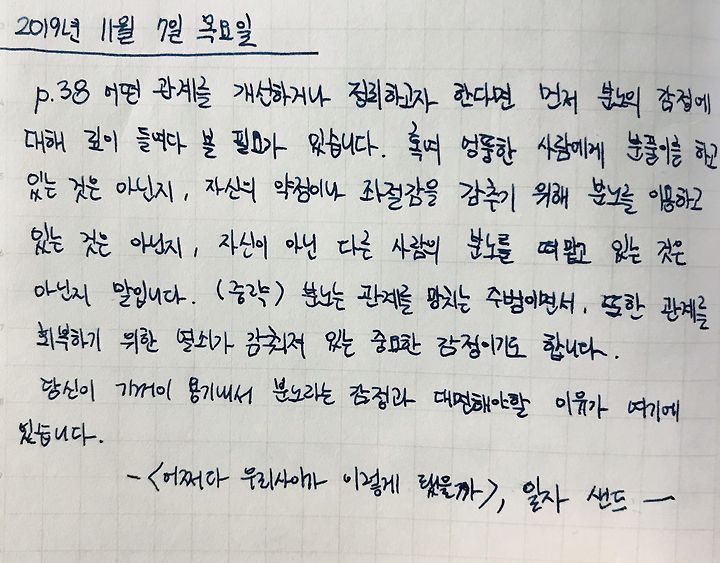 2019년 11월 7일 목요일
p.38 어떤 관계를 개선하거나 정리하고자 한다면 먼저 분노의 감정에
대해 깊이 들여다 볼 필요가 있습니다. 혹여 엉뚱한 사람에게 분풀이를 하고
있는 것은 아닌지, 자신의 약점이나 좌절감을 감추기 위해 분노를 이용하고
있는 것은 아닌지, 자신이 아닌 다른 사람의 분노를 떠맡고 있는 것은
아닌지 말입니다. (중략) 분노는 관계를 망치는 주범이면서, 또한 관계를
회복하기 위한 열쇠가 감춰져 있는 중요한 감정이기도 합니다.
당신이 기꺼이 용기내서 분노라는 감정과 대면해야할 이유가 여기에
있습니다.
-<어쩌다 우리사이가 이렇게 됐을까>, 일자 샌드 -